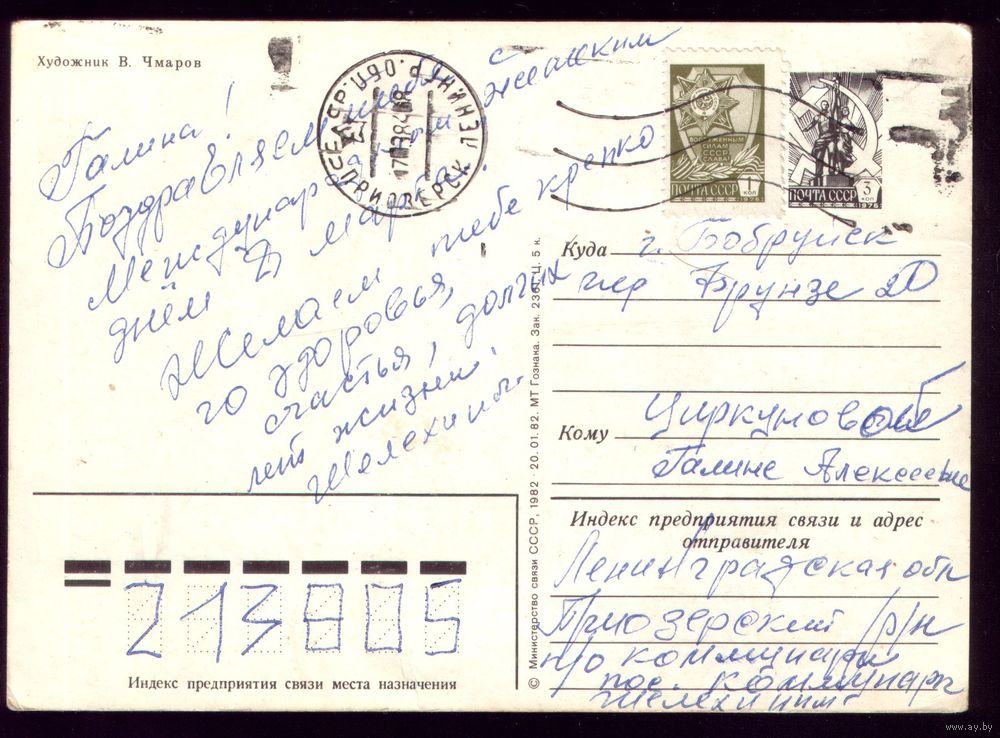 Художник В. Чмаров
Галина!
Поздравляем тебя с
Международным женским
днём 8 марта.
Желаем тебе крепко
го здоровья,
счастья, долгих
лет жизни.
Шелехины.
ПРИОЗЕРСК ЛЕНИНГР. ОБЛ.
ВООРУЖЕННЫМ
СИЛАМ
СССР
СЛАВА!
ПОЧТА СССР 1 КОП
1976
ПОЧТА СССР 3 КОП
1976
Куда г. Бобруйск
пер Фрунзе 20
Кому Циркуновой
Галине Алексеевне
Индекс предприятия связи и адрес
отправителя
Ленинградская обл
Приозерский р/н
п/о Коммунары
пос. Коммунары
Шелехиным
213805
Индекс предприятия связи места назначения
© Министерство связи СССР, 1982 · 20.01.82. МТ Гознака. Зак. 2361. Ц. 5 к.
www.ay.by